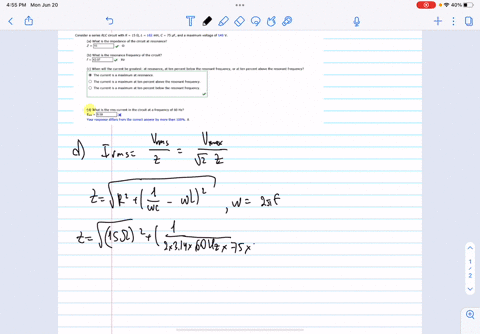 4:55 PM Mon Jun 20
40%
Consider a series RLC circuit with R = 15 Ω, L = 162 mH, C = 75 μF, and a maximum voltage of 160 V.
(a) What is the impedance of the circuit at resonance?
Z = 15 Ω
(b) What is the resonance frequency of the circuit?
(c) When will the current be greatest, at resonance, at ten percent below the resonant frequency, or at ten percent above the resonant frequency?
The current is a maximum at resonance.
The current is a maximum at ten percent above the resonant frequency.
The current is a maximum at ten percent below the resonant frequency.
(d) What is the rms current in the circuit at a frequency of 60 Hz?
Your response differs from the correct answer by more than 100%. A
d) Irms = Vrms / Z = Vmax / √2 Z
Z = √R² + (1/WC - WL)² , W = 2πF
Z = √(15Ω)² + (1 / 2×3.14×60Hz×75×
1
2